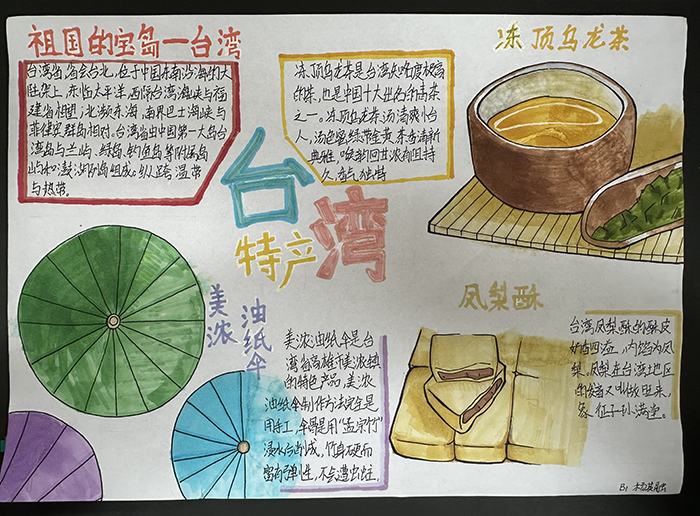 祖国的宝岛一台湾
台湾省省会台北,位于中国东南沿海的大
陆架上,东临太平洋,西隔台湾海峡与福
建省相望,北濒东海,南界巴士海峡与
菲律宾群岛相对。台湾省由中国第一大岛台
湾岛与兰屿、绿岛、钓鱼岛等附属岛
屿和澎湖列岛组成。纵跨温带
与热带。
冻顶乌龙茶是台湾知名度极高
的茶,也是中国十大世名的青茶
之一。冻顶乌龙茶汤清爽怡
人,汤色蜜绿带金黄,茶香清新
典雅,喉韵回甘浓郁且持
久,香气独特
冻顶乌龙茶
台湾
特产
美浓
油纸伞
美浓油纸伞是台
湾省高雄市美浓镇
的特色产品,美浓
油纸伞制作方法完全是
用手工,伞骨是用“孟宗竹”
浸水台削成,竹身硬而
富有弹性,不会遭虫蛀。
凤梨酥
台湾凤梨酥的酥皮
奶香四溢,内馅为凤
梨。凤梨在台湾地区
的候音又叫做旺来,
象征子孙满堂。